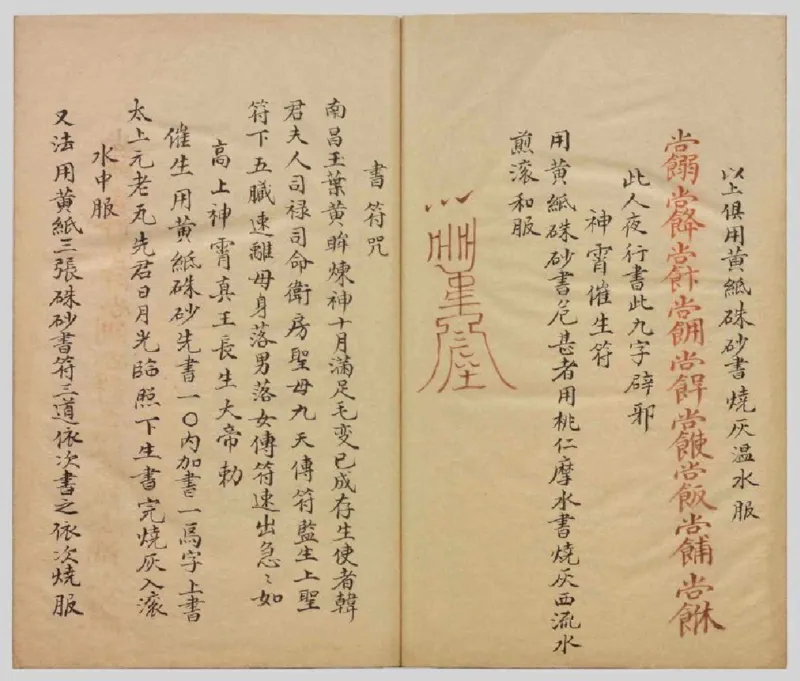 以上俱用黄紙硃砂書燒灰温水服
此人夜行書此九字辟邪
神霄催生符
用黄紙硃砂書危甚者用桃仁摩水書燒灰西流水
煎滚和服
書符咒
南昌玉葉黄眸煉神十月滿足毛变已成存生使者韓
君夫人司禄司命衛房聖母九天傳符監生上聖
符下五臟速離母身落男落女傳符速出急〻如
高上神霄真王長生大帝勅
催生用黄紙硃砂先書一〇内加書一馬字上書
太上元老瓦先君日月光臨照下生書完燒灰入滚
水中服
又法用黄紙三張硃砂書符三道依次書之依次燒服